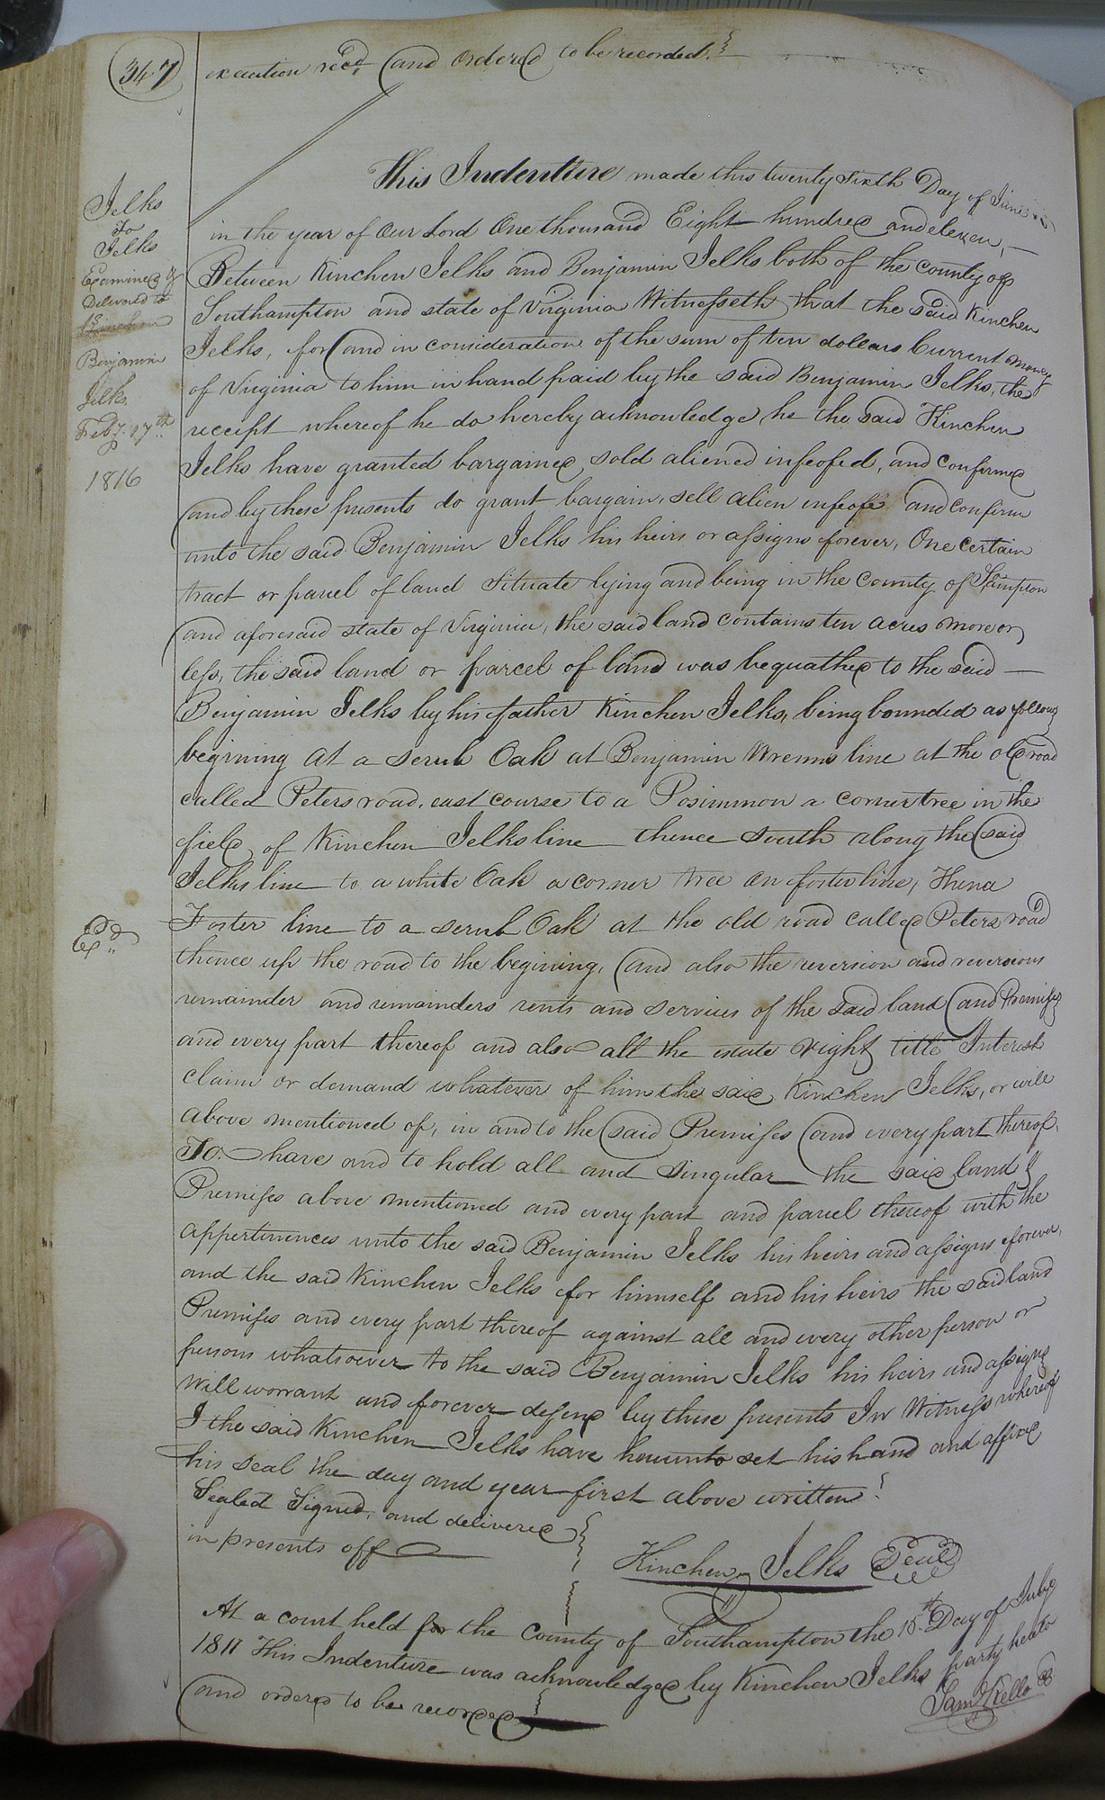 347
execution recd. and ordered to be recorded.
Jelks
to
Jelks
Examined &
Delivered to
Benjamin
Jelks
Feby. 17th
1816
This Indenture made this twenty sixth Day of June
in the year of Our Lord One thousand Eight hundred and eleven,
Between Kinchen Jelks and Benjamin Jelks both of the county of
Southampton and state of Virginia Witnesseth that the said Kinchen
Jelks, for and in consideration of the sum of ten dollars Current money
of Virginia to him in hand paid by the said Benjamin Jelks, the
receipt whereof he do hereby acknowledge, he the said Kinchen
Jelks have granted bargained, sold aliened infeofed, and confirmed
and by these presents do grant bargain, sell alien infeofe and confirm
unto the said Benjamin Jelks his heirs or assigns forever, One certain
tract or parcel of land Situate lying and being in the County of Sthampton
and aforesaid state of Virginia, the said land contains ten acres more or
less, the said land or parcel of land was bequathed to the said
Benjamin Jelks by his father Kinchen Jelks, being bounded as follows
begining at a scrub Oak at Benjamin Wrenns line at the old road
called Peters road, east course to a Posimmon a corner tree in the
field of Kinchen Jelks line thence South along the said
Jelks line to a white Oak a corner tree on foster line, Thence
Foster line to a scrub Oak at the old road called Peters road
Exd
thence up the road to the begining, and also the reversion and reversions
remainder and remainders rents and services of the said land and Premises
and every part thereof and also all the estate right title Interest
claim or demand whatever of him the said Kinchen Jelks, or will
above mentioned of, in and to the said Premises and every part thereof.
To have and to hold all and Singular the said land &
Premises above mentioned and every part and parcel thereof with the
appertinences unto the said Benjamin Jelks his heirs and assigns forever,
and the said Kinchen Jelks for himself and his heirs the said land
Premises and every part thereof against all and every other person or
persons whatsoever to the said Benjamin Jelks his heirs and assigns
will worrant and forever defend by these presents In Witness whereof
I the said Kinchen Jelks have hereunto set his hand and affixed
his seal the day and year first above written
Sealed Signed, and delivered
in presents off
Kinchen Jelks Seal
At a court held for the County of Southampton the 15th Day of July
1811 This Indenture was acknowledged by Kinchen Jelks party hereto
and ordered to be recorded
Saml Kello CC